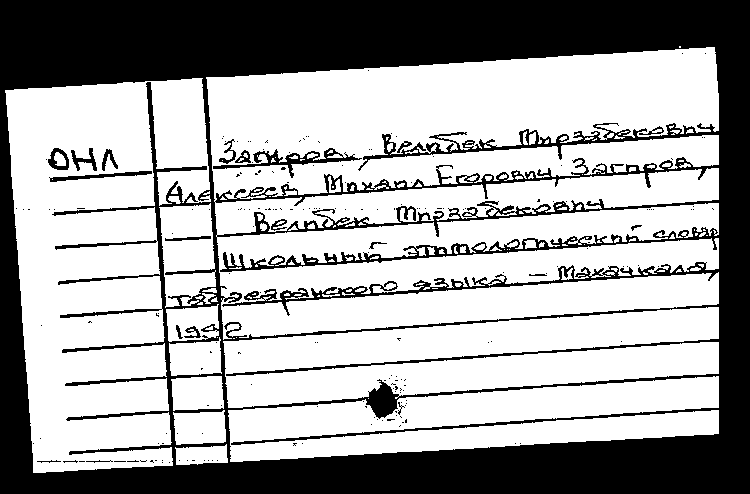 ОНЛ Загиров, Велибек Мирзабекович
Алексеев, Михаил Егорович, Загиров,
Велибек Мирзабекович
Школьный этимологический словар
табасаранского языка – Махачкала,
1992.